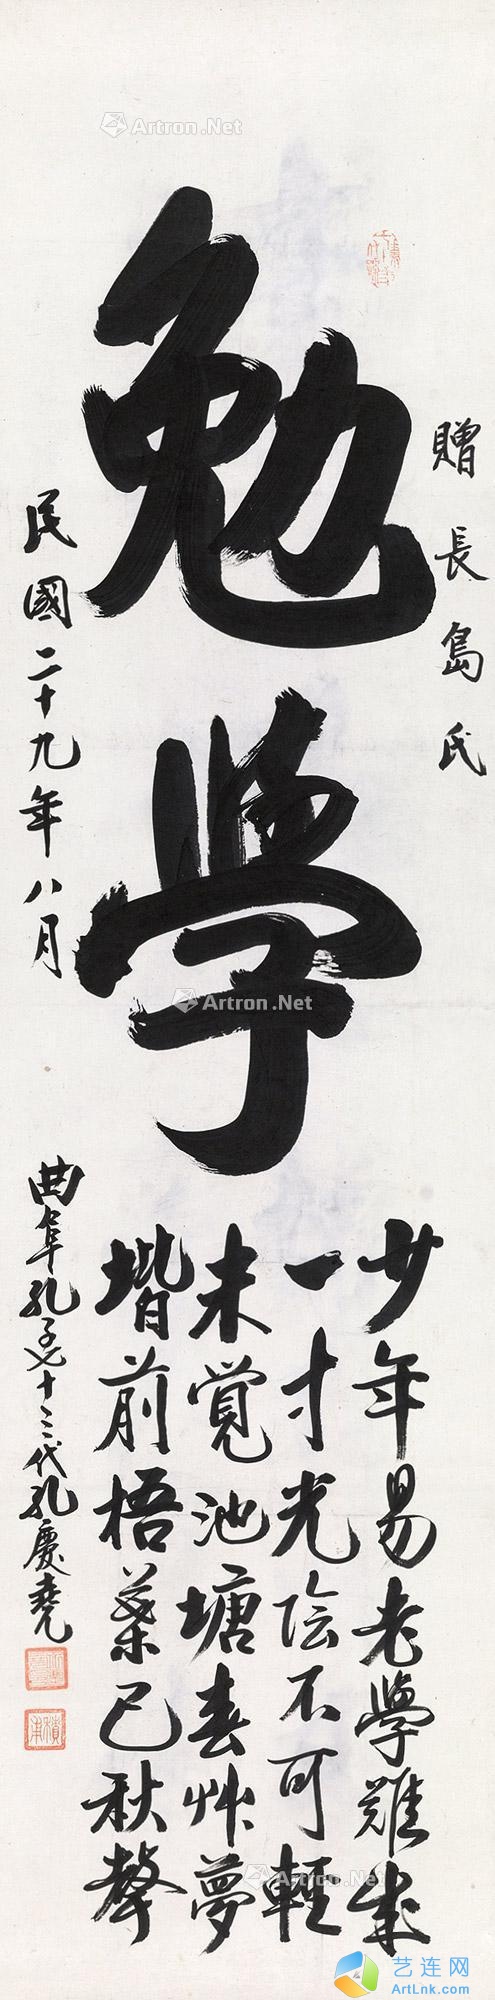 Artron.Net
贈長島氏
勉學
少年易老學難成
一寸光陰不可輕
未覺池塘春艸夢
堦前梧葉已秋聲
民國二十九年八月
曲阜孔子七十三代孔慶堯
Artron.Net
Artron.Net
艺连网
ArtLnk.com